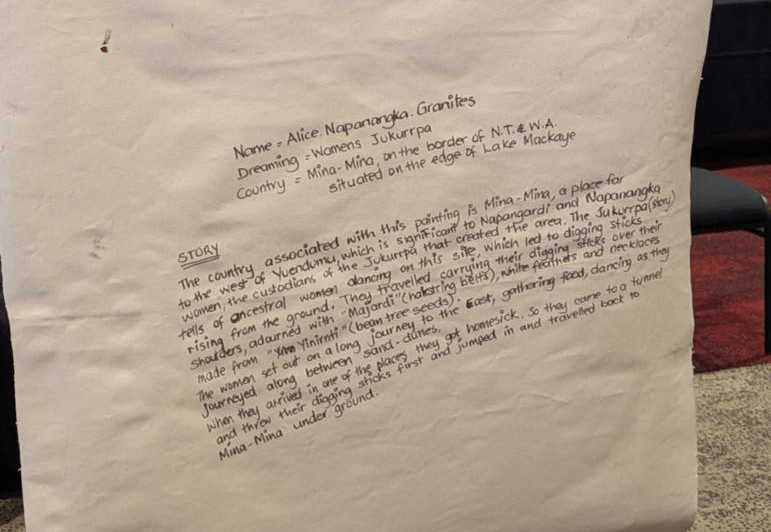 Name = Alice. Napanangka. Granites
Dreaming = Womens Jukurrpa
Country = Mina-Mina, on the border of N.T. & W.A.
situated on the edge of Lake Mackaye
STORY
The country associated with this painting is Mina-Mina, a place far
to the west of Yuendumu, which is significant to Napangardi and Napanangka
women, the custodians of the Jukurrpa that created the area. The Jukurrpa (story)
tells of ancestral women dancing on this site, which led to digging sticks
rising from the ground. They travelled carrying their digging sticks over their
shoulders, adourned with "Majardi" (hairstring belts), white feathers and necklaces
made from "Yinirnti" (bean tree seeds).
The women set out on a long journey to the East, gathering food, dancing as they
journeyed along between sand-dunes.
When they arrived in one of the places, they got homesick. So they came to a tunnel
and threw their digging sticks first and jumped in and travelled back to
Mina-Mina under ground.